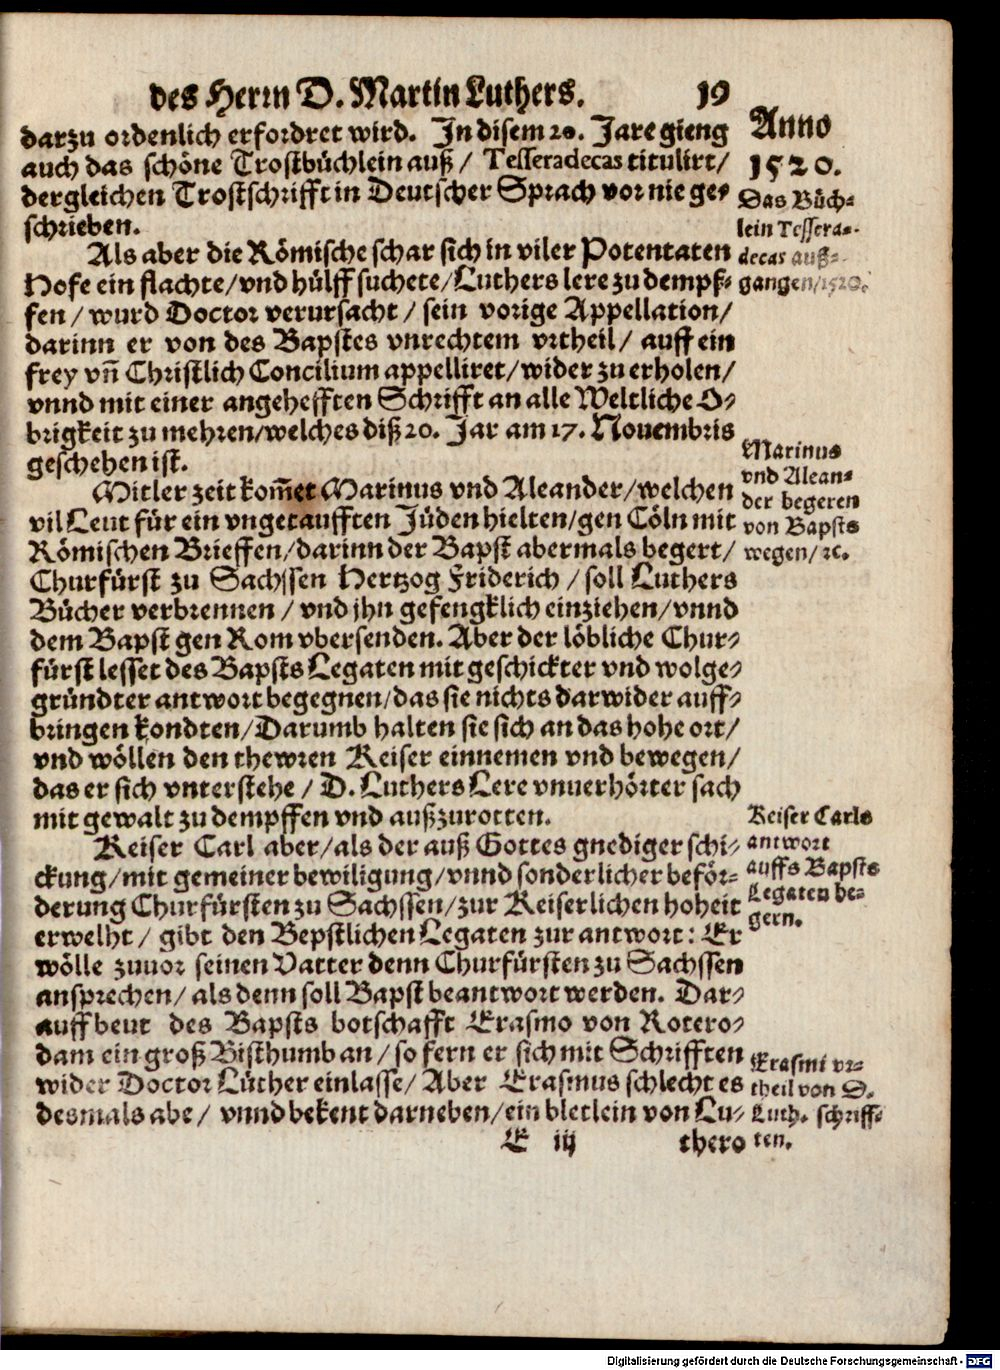 des Herrn D. Martin Luthers. 19
darzu ordenlich erfordret wird. In disem 20. Jare gieng
auch das schöne Trostbüchlein auß / Tesseradecas titulirt /
dergleichen Trostschrifft in Deutscher Sprach vor nie ge-
schrieben.
Anno
1520.
Das Büch-
lein Tessera-
decas auß-
gangen / 1520.
Als aber die Römische schar sich in viler Potentaten
Hofe ein flachte / vnd hülff suchete / Luthers lere zu dempf-
fen / wurd Doctor verursacht / sein vorige Appellation /
darinn er von des Bapstes vnrechtem vrtheil / auff ein
frey vñ Christlich Concilium appelliret / wider zu erholen /
vnnd mit einer angehefften Schrifft an alle Weltliche O-
brigkeit zu mehren / welches diß 20. Jar am 17. Nouembris
geschehen ist.
Mitler zeit kom̃et Marinus vnd Aleander / welchen
vil Leut für ein vngetaufften Jüden hielten / gen Cöln mit
Römischen Brieffen / darinn der Bapst abermals begert /
Churfürst zu Sachssen Hertzog Friderich / soll Luthers
Bücher verbrennen / vnd jhn gefengklich einziehen / vnnd
dem Bapst gen Rom vbersenden. Aber der löbliche Chur-
fürst lesset des Bapsts Legaten mit geschickter vnd wolge-
gründter antwort begegnen / das sie nichts darwider auff-
bringen kondten / Darumb halten sie sich an das hohe ort /
vnd wöllen den thewren Keiser einnemen vnd bewegen /
das er sich vnterstehe / D. Luthers Lere vnuerhörter sach
mit gewalt zu dempffen vnd außzurotten.
Marinus
vnd Alean-
der begeren
von Bapsts
wegen / ꝛc.
Keiser Carl aber / als der auß Gottes gnediger schi-
ckung / mit gemeiner bewiligung / vnnd sonderlicher beför-
derung Churfürsten zu Sachssen / zur Keiserlichen hoheit
erwelht / gibt den Bepstlichen Legaten zur antwort: Er
wölle zuuor seinen Vatter denn Churfürsten zu Sachssen
ansprechen / als denn soll Bapst beantwort werden. Dar-
auff beut des Bapsts botschafft Erasmo von Rotero-
dam ein groß Bisthumb an / so fern er sich mit Schrifften
wider Doctor Lüther einlasse / Aber Erasmus schlecht es
desmals abe / vnnd bekent darneben / ein bletlein von Lu-
Keiser Carls
antwort
auffs Bapsts
Legaten be-
gern.
Erasmi vr-
theil von D.
Luth. schriff-
ten.
E iij thero
Digitalisierung gefördert durch die Deutsche Forschungsgemeinschaft - DFG